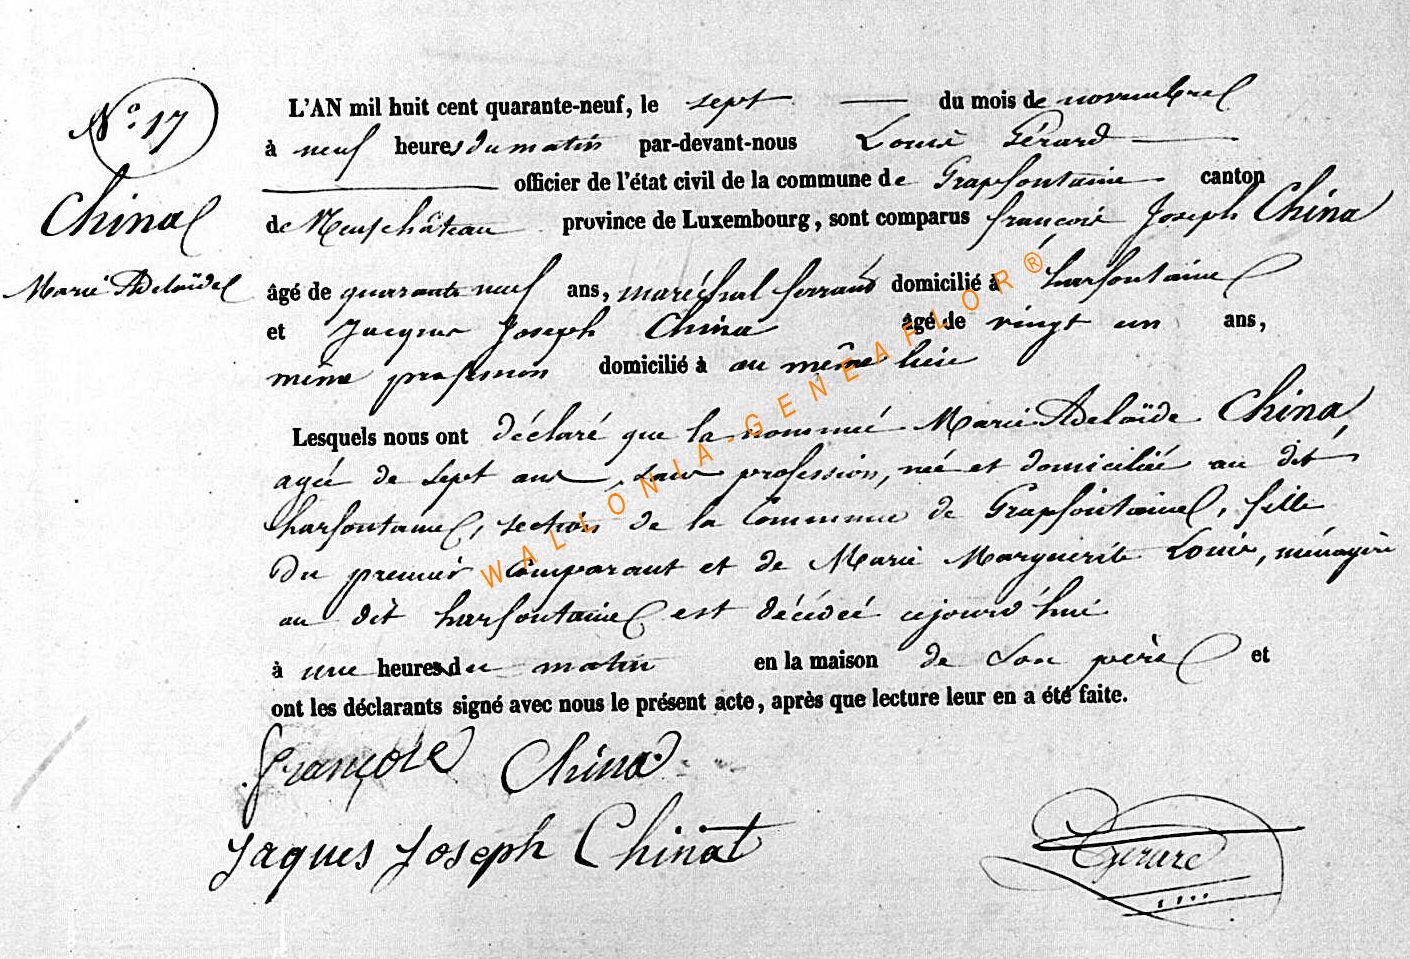 N.° 17
China
Marie Adelaïde
L'AN mil huit cent quarante-neuf, le sept du mois de novembre
à neuf heures du matin par-devant-nous Louis Gérard
officier de l'état civil de la commune de Grapfontaine canton
de Neufchâteau province de Luxembourg, sont comparus françois Joseph China
âgé de quarante neuf ans, maréchal ferrand domicilié à harfontaine
et Jacques Joseph China âgé de vingt un ans,
même profession domicilié à au même lieu
Lesquels nous ont déclaré que la nommée Marie Adelaïde China,
agée de sept ans, sans profession, née et domiciliée au dit
harfontaine, section de la Commune de Grapfontaine, fille
du premier comparant et de Marie Marguerite Louis, ménagère
au dit harfontaine est décédée cejourd'hui
à une heures du matin en la maison de son père et
ont les déclarants signé avec nous le présent acte, après que lecture leur en a été faite.
François China
Jaques Joseph Chinat
Gerard
WALLONIA-GENEAFLOR®